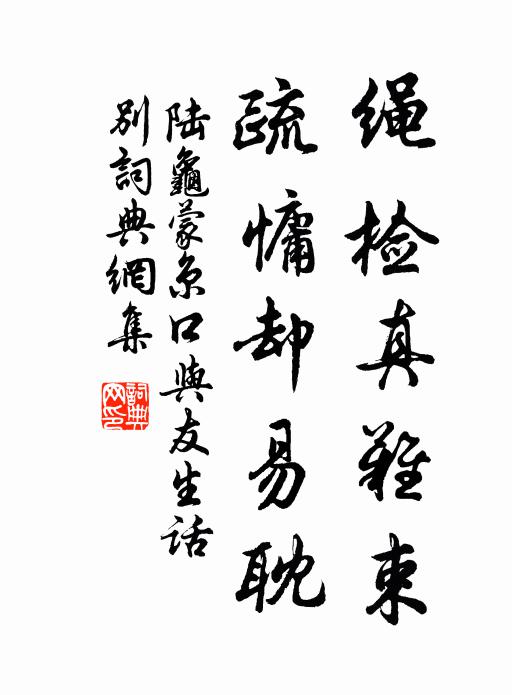 绳检真难束
疏慵却易耽
陆龜蒙京口與友生話
别詞典網集
詞典
网印